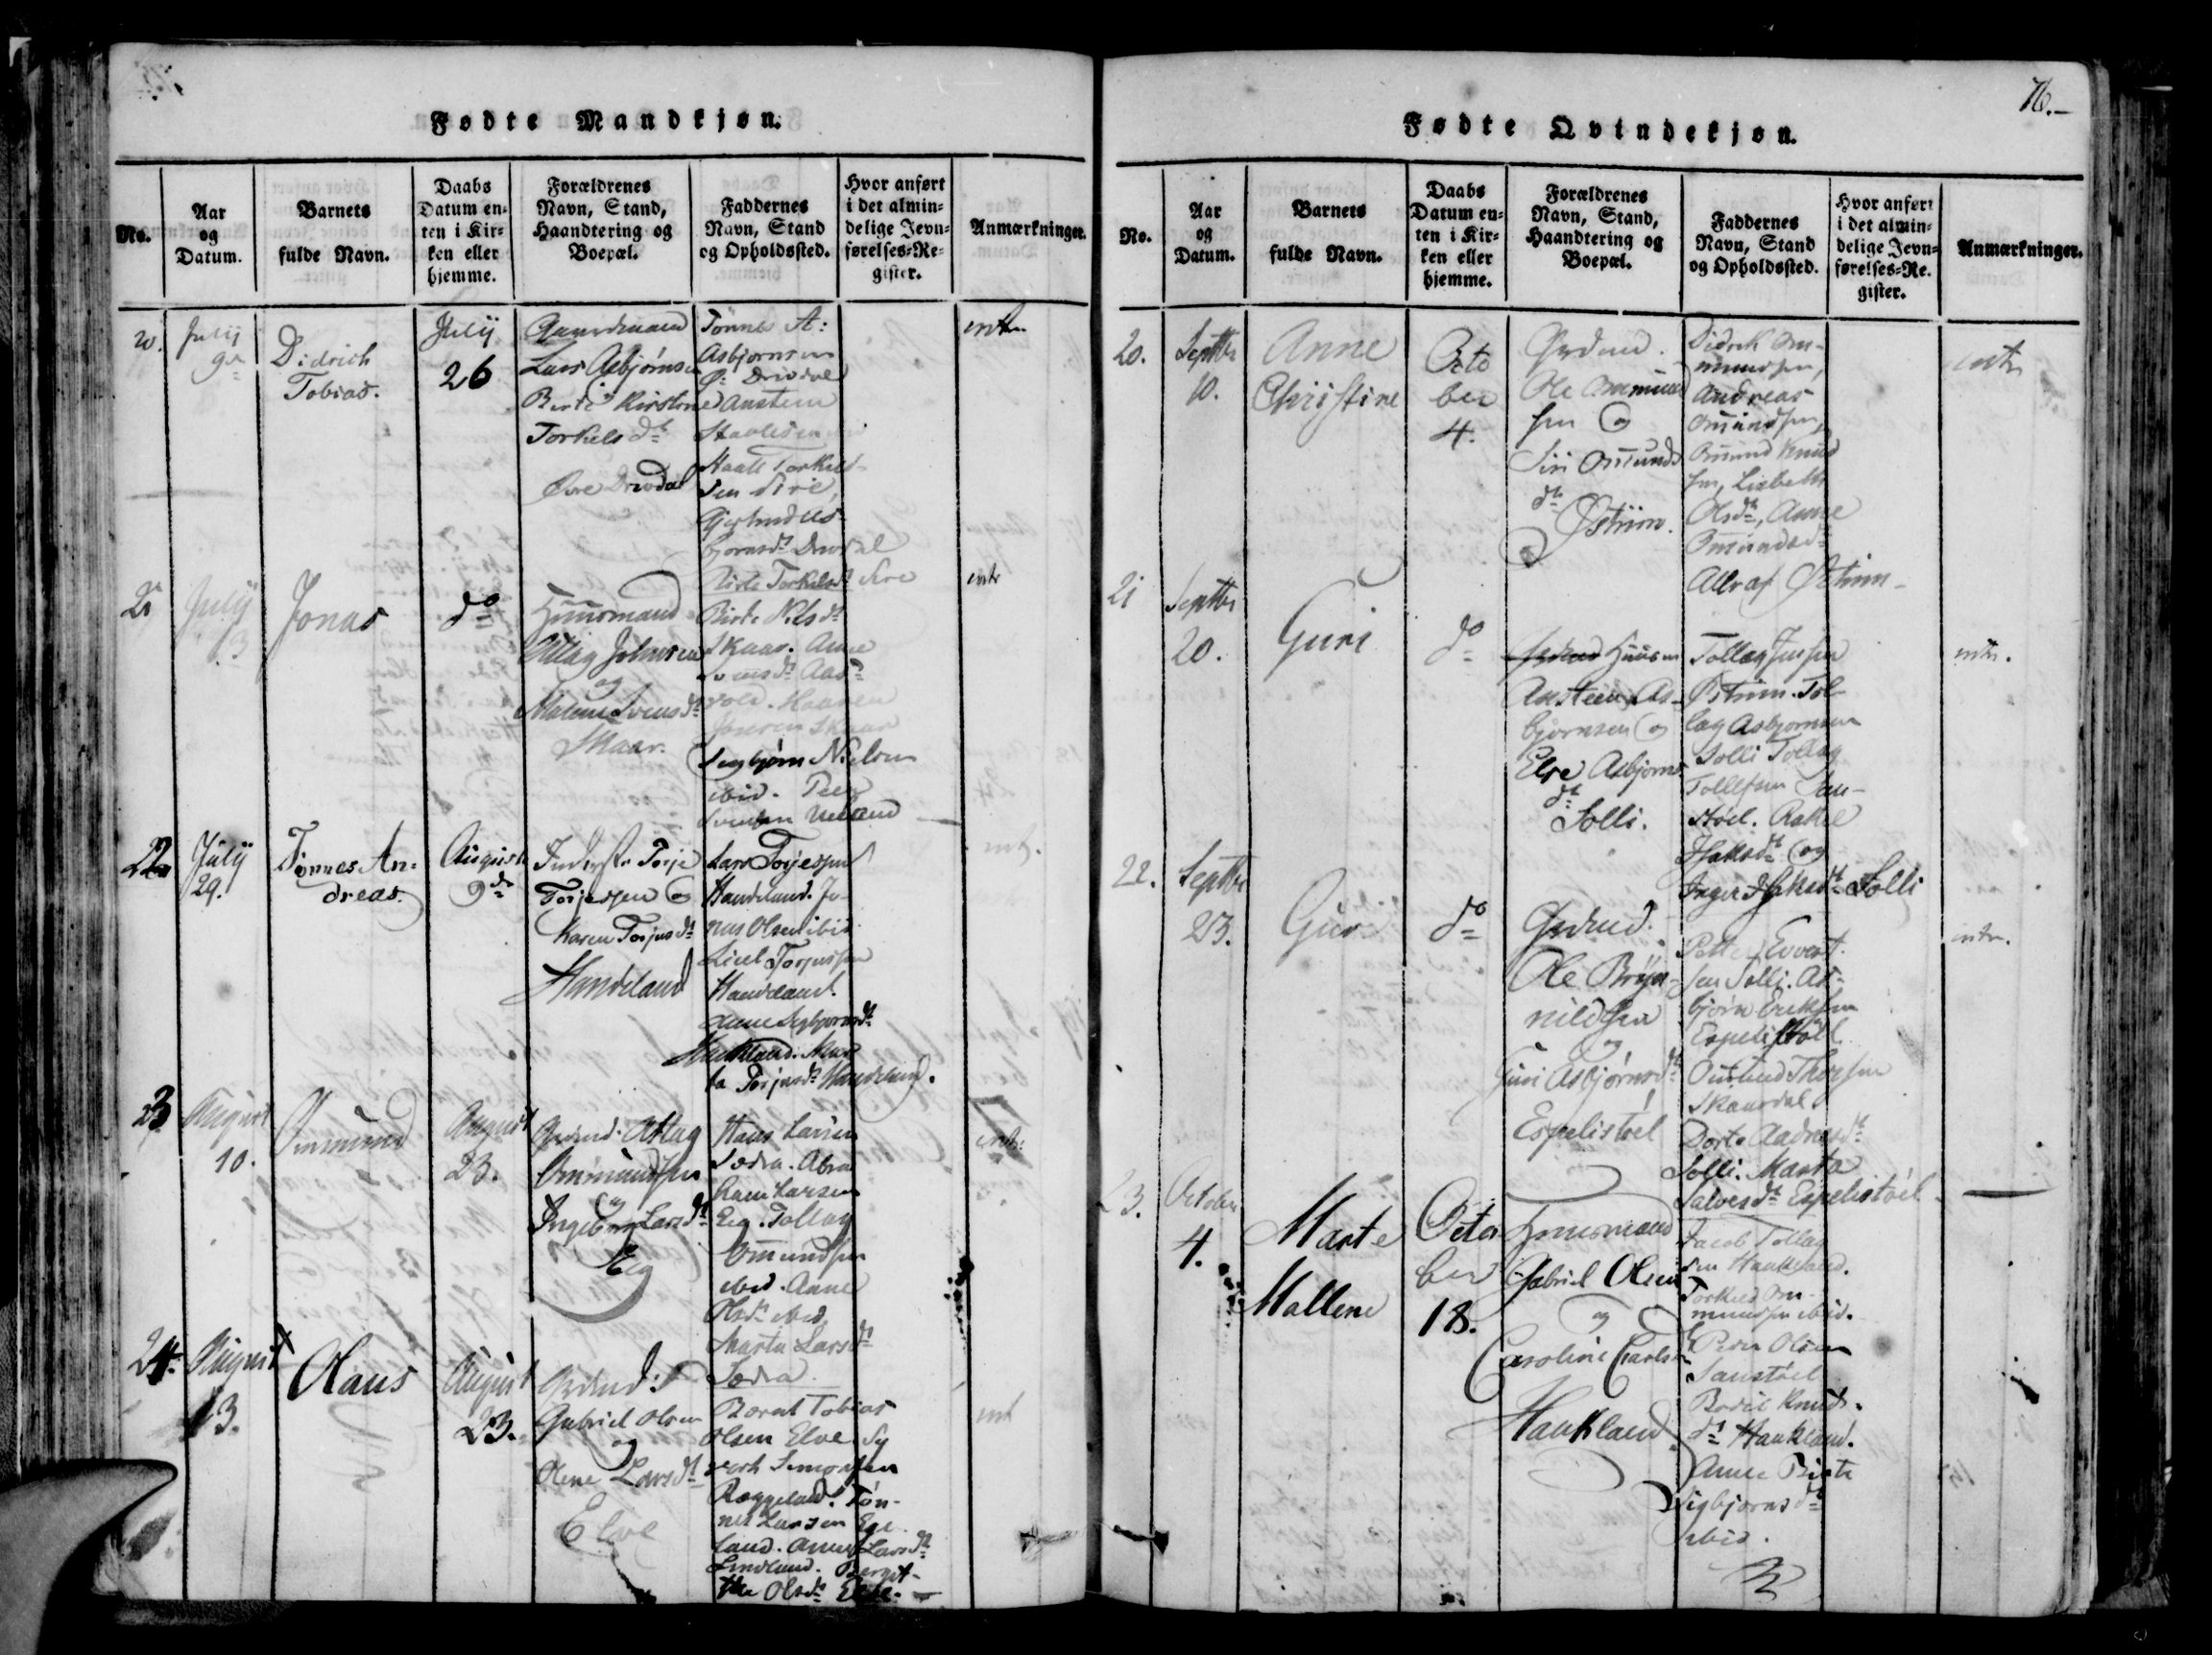 Fødte Mandkjøn.
No.
Aar
og
Datum.
Barnets
fulde Navn.
Daabs
Datum en-
ten i Kir-
ken eller
hjemme.
Forældrenes
Navn, Stand,
Haandtering og
Boepæl.
Faddernes
Navn, Stand
og Opholdssted.
Hvor anført
i det almin-
delige Jevn-
førelses-Re-
gister.
Anmærkninger.
20.
July
9de
Didrich
Tobias.
July
26
Gaardmand
Lars Asbjørnsen
og
Berte Kirstine
Torkels dt
Øvre Drivdal
Tønnes A:
Asbjørnsen
Ø: Drivdal
Austein
Torkild-
sen Sire,
bjørnsdt Drivdal
Birte Torkelsdt Sire
intr.
21
July
13
Jonas
do
Huusmand
Attlag Johnsen
og
Malene Svensdt
Skaar.
Birte Nilsdt
Skaar. Anne
Svensdt
Jonsen Skaar
Sigbjørn Nielsen
ibid. Peer
Svendsen
intr
22
July
29.
Tønnes An-
dreas.
August
9de
Inderste Torje
Torjessen og
Karen Torjusdt
Handeland
Lars Torjessen
Handeland. Jo-
nas Olsen ibid
Livel Torjussen
Handeland.
Anne Sigbjørnsdt
Haukland. Mar-
ta Torjusdt Handeland.
int.
23
August
10.
Ommund
August
23.
Grdmd. Atlag
Ommundsen
og
Ingeborg Larsdt
Eeg
Hans Larsen
Sædra. Abra-
ham Larsen
Eeg. Tollag
Omundsen
ibid. Anne
Olsdt ibid
Marta Larsdt
Sædra.
intr:
24.
August
13.
Olaus
August
23.
Grdmd:
Gabriel Olsen
og
Olene Larsdt
Elve
Bernt Tobias
Olsen Elve. Sy-
vert Simonsen
Ræggeland. Tøn-
nes Larsen Ege-
land. Anne Larsdt
Lindland. Bergit-
tha Olsdt Elve.
int
76.
Fødte Qvindekjøn.
No.
Aar
og
Datum.
Barnets
fulde Navn.
Daabs
Datum en-
ten i Kir-
ken eller
hjemme.
Forældrenes
Navn, Stand,
Haandtering og
Boepæl.
Faddernes
Navn, Stand
og Opholdssted.
Hvor anført
i det almin-
delige Jevn-
førelses-Re-
gister.
Anmærkninger.
20.
Septbr
10.
Anne
Christine
Octo
ber
4.
Grdmd.
Ole Ommund
sen og
Siri Omunds
dt
Østrim.
Didrik Om-
mundsen,
Andreas
Omundsen,
Omund Knud
sen, Lisbeth
Olsdt, Anne
Omundsdt
Alle af Østrim
intr
21
Septbr
20.
Guri
do
Grdmd Huusm
Austeen As-
bjørnsen og
Else Asbjørns
dt
Solli.
Tollag Jensen
Østrim. Tol-
lag Asbjørnsen
Solli Tollag
Tollefsen San-
støel. Rakel
Isaksdt og
Inger Isaksdt Solli
intr.
22.
Septbr
23.
Guri
do
Grdmd.
Ole Bryn-
nildsen
og
Guri Asbjørnsdt
Espelistøel
Petter Evert-
sen Solli. As-
bjørn Eriksen
Espelistøel
Omund Thorsen
Skaardal
Dorte Aadnesdt
Solli. Marta
Salvesdt Espelistøel
intr.
23.
October
4.
Marte
Mallene
Octo
ber
18.
Huusmand
Gabriel Olsen
og
Caroline Carls
Haukland
Jacob Tollag
sen Haukland.
Torkild Om-
mundsen ibid.
Peder Olsen
Sanstøel
Bodil Knuds-
dt Haukland.
Anne Birte
Sigbjørnsdt
ibid.